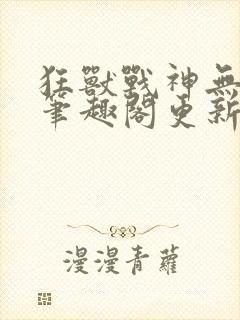 狂獸戰神無
筆趣閣更新
漫漫青蘿